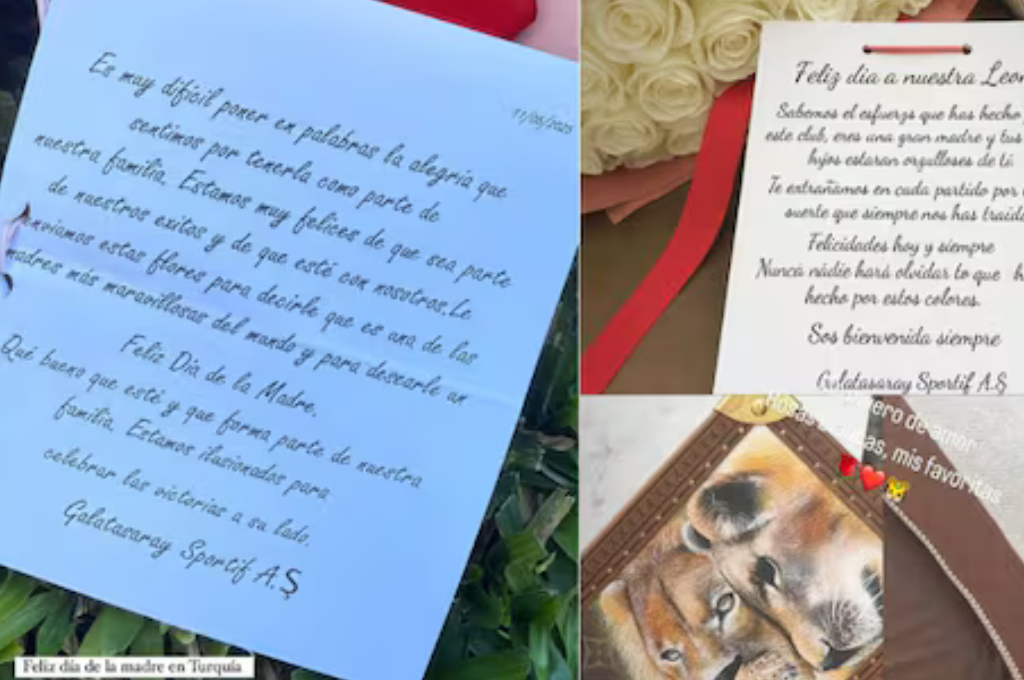 11/05/2025
Es muy difícil poner en palabras la alegría que
sentimos por tenerla como parte de
nuestra familia. Estamos muy felices de que sea parte
de nuestros exitos y de que esté con nosotros.Le
enviamos estas flores para decirle que es una de las
madres más maravillosas del mundo y para desearle un
Feliz Día de la Madre.
Qué bueno que esté y que forma parte de nuestra
familia. Estamos ilusionados para
celebrar las victorias a su lado.
Galatasaray Sportif A.Ş
Feliz día de la madre en Turquía
Feliz dia a nuestra Leon
Sabemos el esfuerzo que has hecho
este club, eres una gran madre y tus
hijos estaran orgullosos de tú
Te extrañamos en cada partido por
suerte que siempre nos has traido
Felicidades hoy y siempre
Nunca nádie hará olvidar lo que h
hecho por estos colores.
Sos bienvenida siempre
Galatasaray Sportif A.Ş
ero de amor
Rosas blancas, mis favoritas